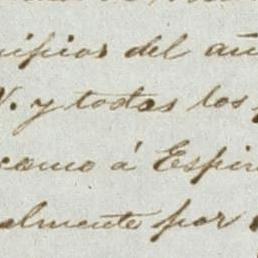 cipios del añ
V. y todos los
como á Espir
almente por